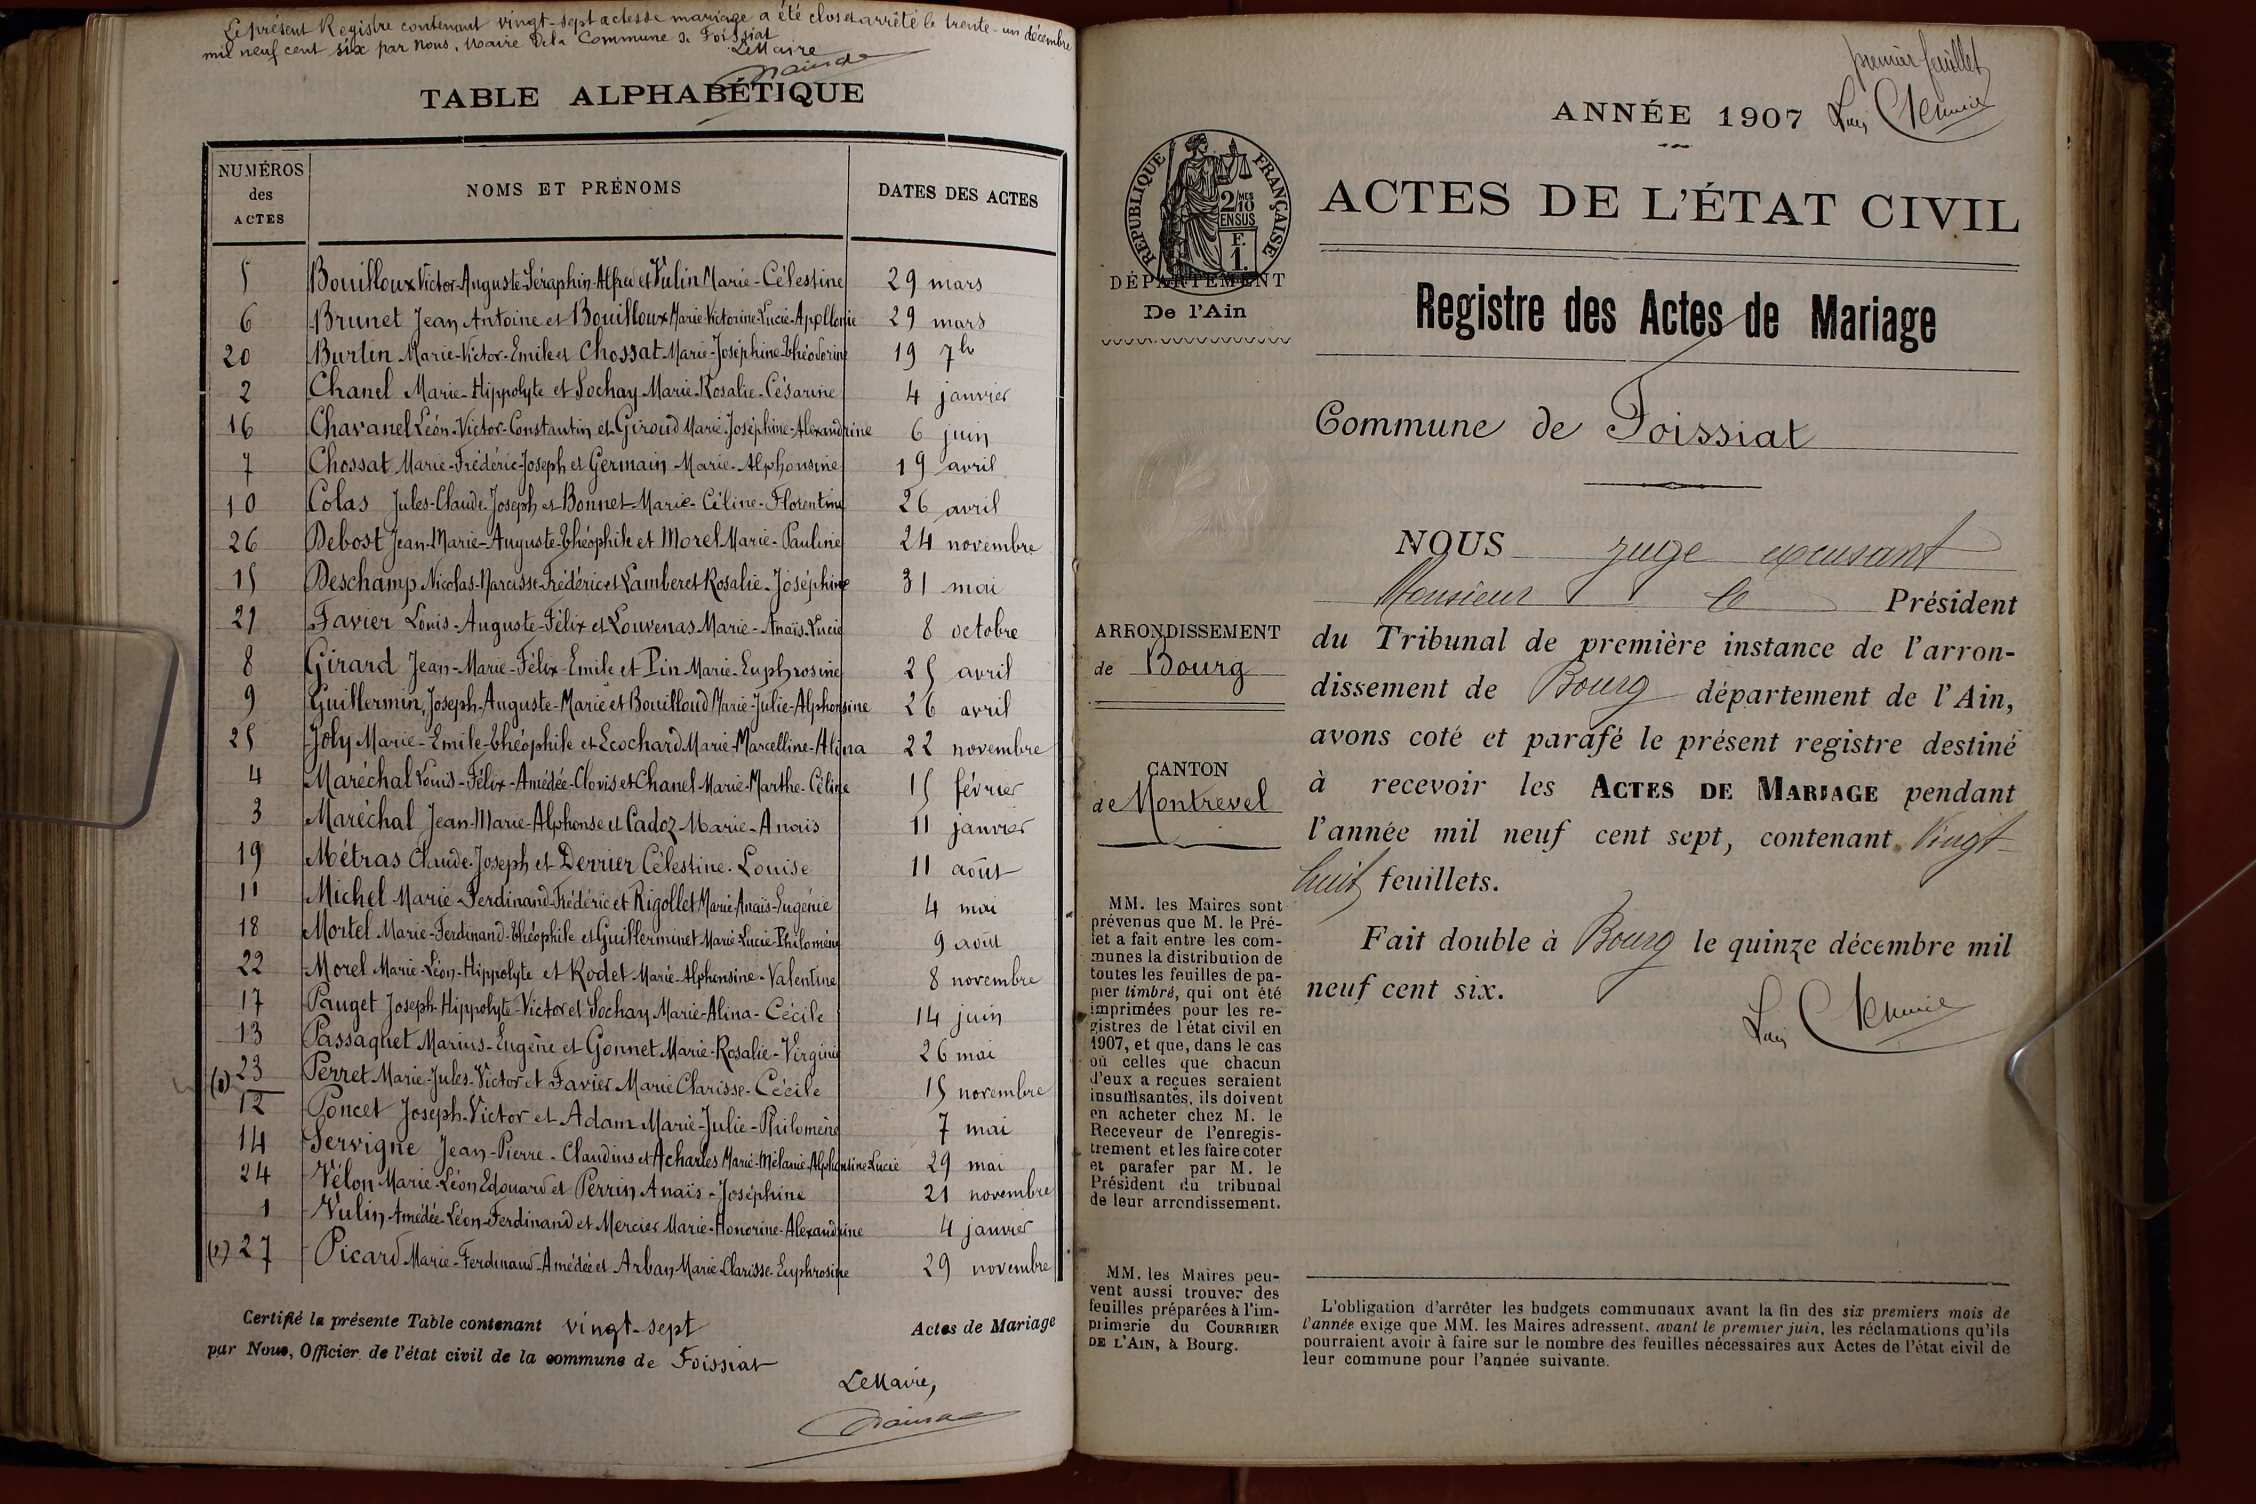 Le présent Registre contenant vingt-sept actes de mariage a été clos et arrêté le trente-un décembre
mil neuf cent six par nous, Maire de la Commune de Foissiat
Le Maire
TABLE ALPHABÉTIQUE
NUMÉROS des ACTES NOMS ET PRÉNOMS DATES DES ACTES
5 Bouilloux Victor-Auguste-Séraphin-Alfred et Vulin Marie-Célestine 29 mars
6 Brunet Jean Antoine et Bouilloux Marie-Victorine-Lucie-Apollonie 29 mars
20 Burtin Marie-Victor-Emile et Chossat Marie-Joséphine-Théodorine 19 7bre
2 Chanel Marie-Hippolyte et Sochay Marie-Rosalie-Césarine 4 janvier
16 Chavanel Léon-Victor-Constantin et Giroud Marie-Joséphine-Alexandrine 6 juin
7 Chossat Marie-Frédéric-Joseph et Germain Marie-Alphonsine 19 avril
10 Colas Jules-Claude-Joseph et Bonnet Marie-Céline-Florentine 26 avril
26 Debost Jean-Marie-Auguste-Théophile et Morel Marie-Pauline 24 novembre
15 Deschamp Nicolas-Narcisse-Frédéric et Lamberet Rosalie-Joséphine 31 mai
21 Favier Louis-Auguste-Félix et Louvenas Marie-Anaïs-Lucie 8 octobre
8 Girard Jean-Marie-Félix-Emile et Pin Marie-Euphrosine 25 avril
9 Guillermin, Joseph-Auguste-Marie et Bouilloud Marie-Julie-Alphonsine 26 avril
25 Joly Marie-Emile-Théophile et Ecochard Marie-Marcelline-Alina 22 novembre
4 Maréchal Louis-Félix-Amédée-Clovis et Chanel Marie-Marthe-Céline 15 février
3 Maréchal Jean-Marie-Alphonse et Cadoz Marie-Anaïs 11 janvier
19 Métras Claude-Joseph et Derrier Célestine-Louise 11 août
11 Michel Marie-Ferdinand-Frédéric et Rigollet Marie Anaïs-Eugénie 4 mai
18 Mortel Marie-Ferdinand-Théophile et Guillerminet Marie-Lucie-Philomène 9 août
22 Morel Marie-Léon-Hippolyte et Rodet Marie-Alphonsine-Valentine 8 novembre
17 Pauget Joseph-Hippolyte-Victor et Sochay Marie-Alina-Cécile 14 juin
13 Passaquet Marius-Eugène et Gonnet Marie-Rosalie-Virginie 26 mai
23 Perret Marie-Jules-Victor et Favier Marie Clarisse-Cécile 15 novembre
12 Poncet Joseph-Victor et Adam Marie-Julie-Philomène 7 mai
14 Servigne Jean-Pierre-Claudius et Acharles Marie-Mélanie-Alphonsine-Lucie 29 mai
24 Vélon Marie-Léon Edouard et Perrin Anaïs-Joséphine 21 novembre
1 Vulin Amédée-Léon-Ferdinand et Mercier Marie-Honorine-Alexandrine 4 janvier
27 Picard Marie-Ferdinand-Amédée et Arban Marie-Clarisse-Euphrosine 29 novembre
Certifié la présente Table contenant vingt-sept Actes de Mariage
par Nous, Officier de l'état civil de la commune de Foissiat
Le Maire,
premier feuillet
ANNÉE 1907
RÉPUBLIQUE FRANÇAISE
2/10 MES
EN SUS
F.
1.
DÉPARTEMENT
De l'Ain
ACTES DE L'ÉTAT CIVIL
Registre des Actes de Mariage
Commune de Foissiat
ARRONDISSEMENT
de Bourg
CANTON
de Montrevel
MM. les Maires sont
prévenus que M. le Pré-
fet a fait entre les com-
munes la distribution de
toutes les feuilles de pa-
pier timbré, qui ont été
imprimées pour les re-
gistres de l'état civil en
1907, et que, dans le cas
où celles que chacun
d'eux a reçues seraient
insuffisantes, ils doivent
en acheter chez M. le
Receveur de l'enregis-
trement et les faire coter
et parafer par M. le
Président du tribunal
de leur arrondissement.
MM. les Maires peu-
vent aussi trouver des
feuilles préparées à l'im-
primerie du COURRIER
DE L'AIN, à Bourg.
NOUS juge excusant
Monsieur le Président
du Tribunal de première instance de l'arron-
dissement de Bourg département de l'Ain,
avons coté et parafé le présent registre destiné
à recevoir les ACTES DE MARIAGE pendant
l'année mil neuf cent sept, contenant Vingt-
huit feuillets.
Fait double à Bourg le quinze décembre mil
neuf cent six.
L'obligation d'arrêter les budgets communaux avant la fin des six premiers mois de
l'année exige que MM. les Maires adressent, avant le premier juin, les réclamations qu'ils
pourraient avoir à faire sur le nombre des feuilles nécessaires aux Actes de l'état civil de
leur commune pour l'année suivante.